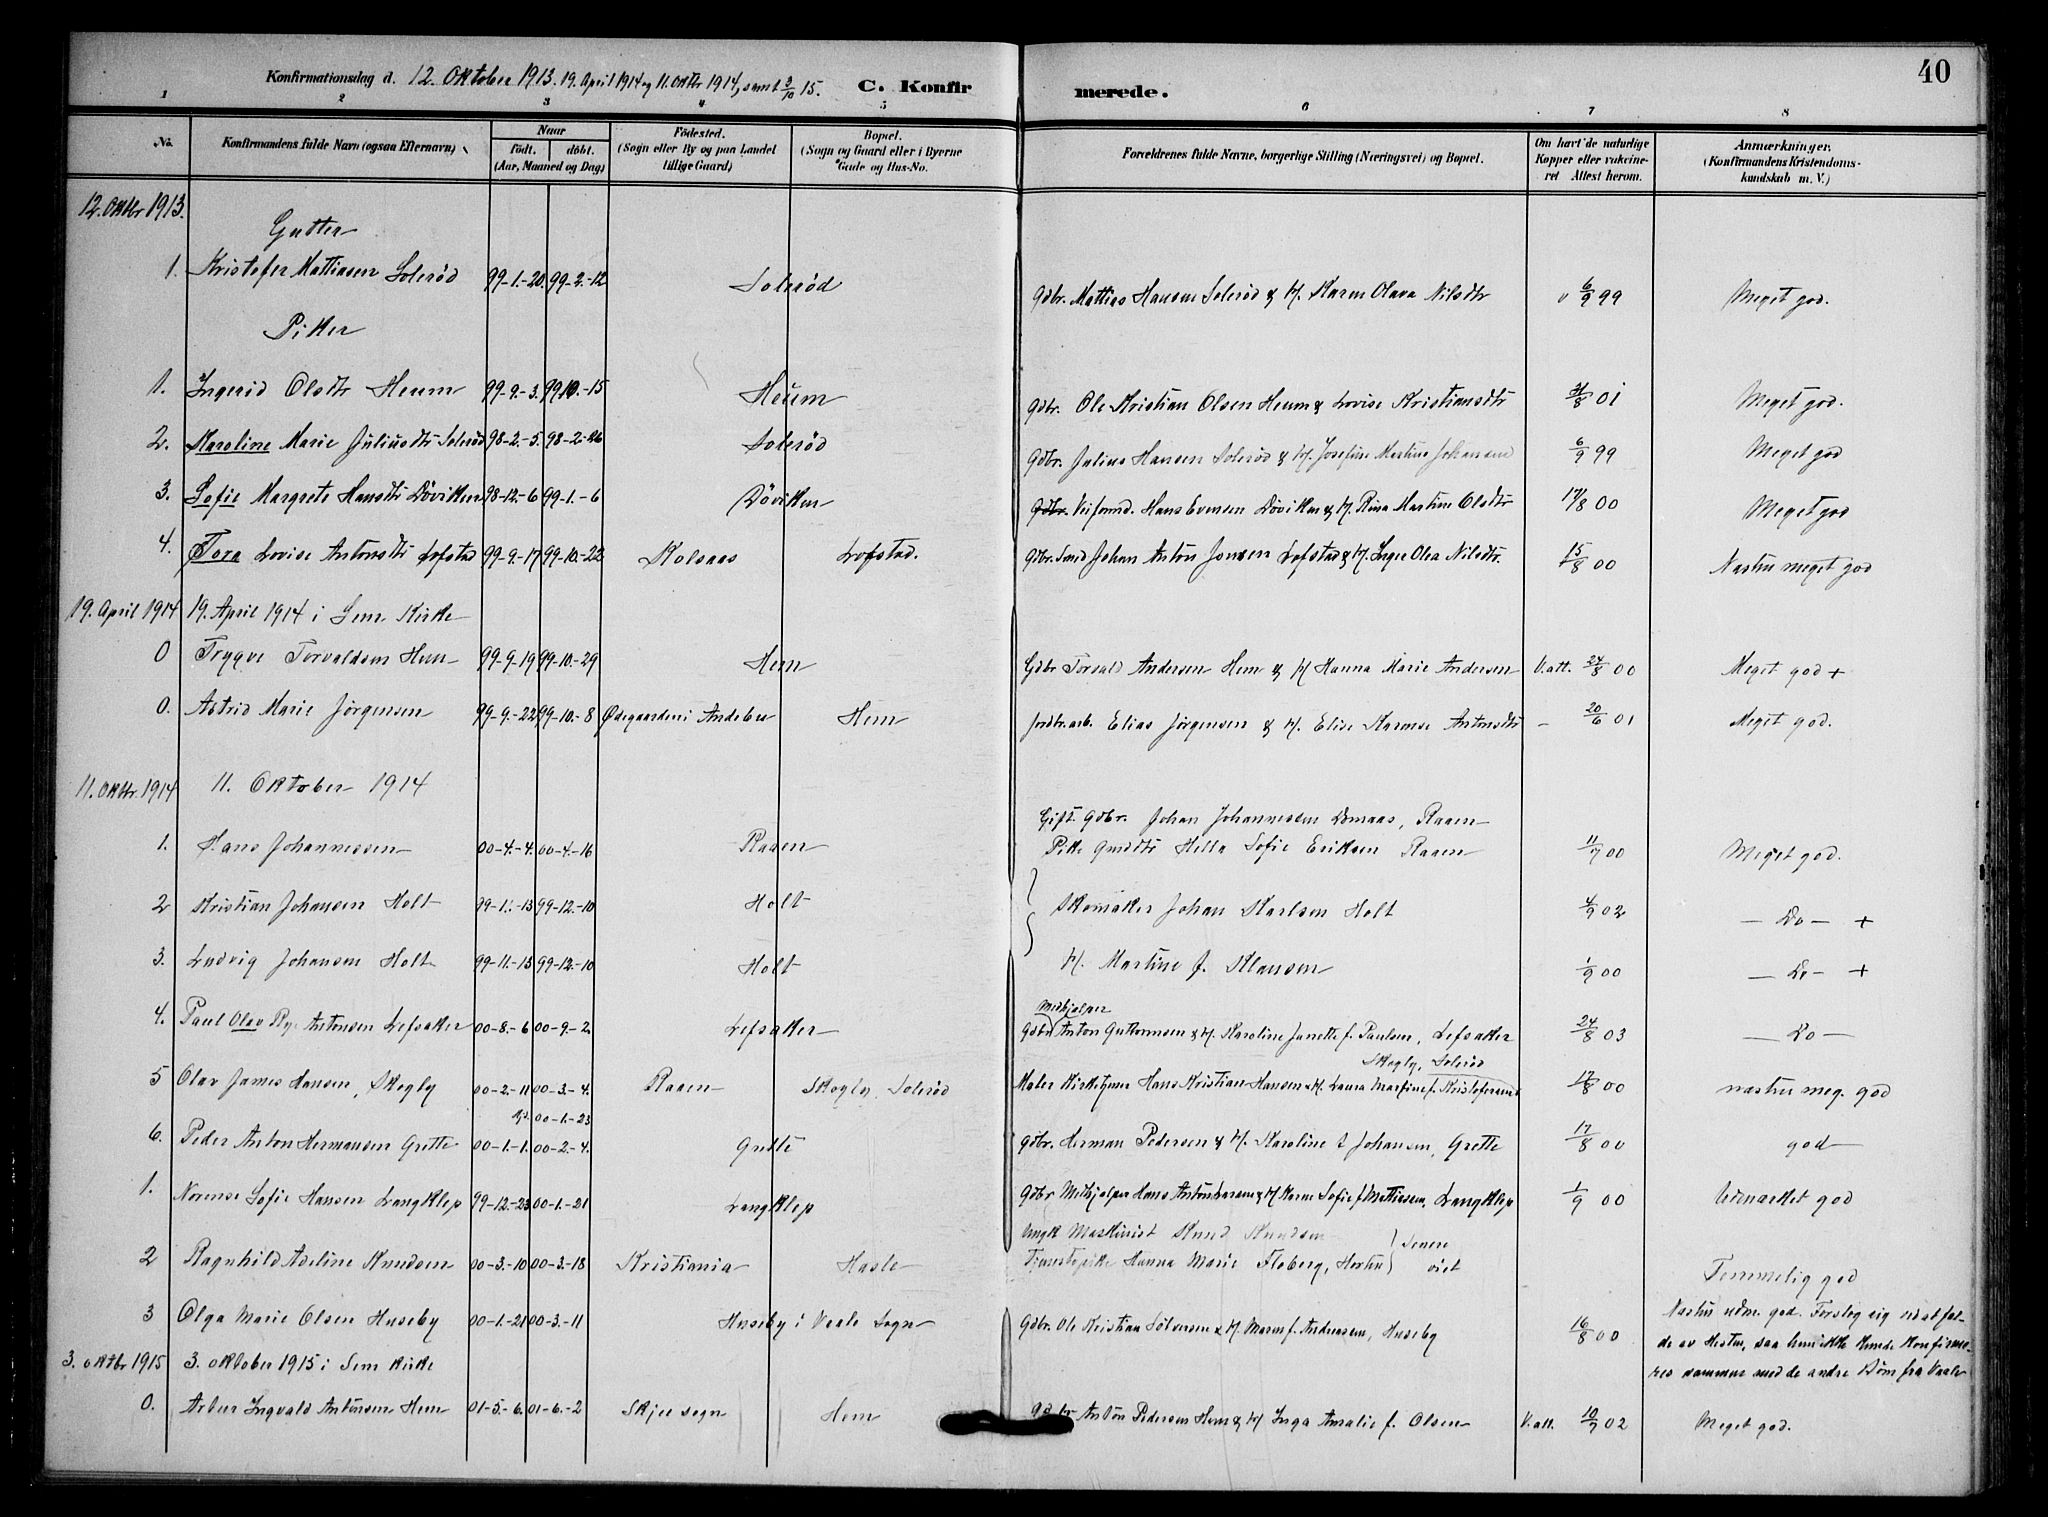 Konfirmationsdag d. 12. Oktober 1913. 19. April 1914 og 11. Oktbr 1914, samt 3/10 15. C. Konfir merede. 40
1 2 3 4 5 6 7 8
No. Konfirmandens fulde Navn (ogsaa Efternavn) Naar Födt. döbt. (Aar, Maaned og Dag) Födested. (Sogn eller By og paa Landet tillige Gaard) Bopæl. (Sogn og Gaard eller i Byerne Gade og Hus-No. Forældrenes fulde Navne, borgerlige Stilling (Næringsvei) og Bopæl. Om havt de naturlige Kopper eller vakcineret Attest herom. Anmærkninger. (Konfirmandens Kristendomskundskab m. V.)
12. Oktbr 1913.
Gutter
1. Kristofer Mattiasen Solerød 99-1.-20. 99-2.-12 Solerød Gdbr. Mattias Hansen Solerød & H. Karen Olava Nilsdtr v 6/9 99 Meget god.
Piker
1. Ingerid Olsdtr Heum 99-9-3. 99 10.-15 Heum Gdbr. Ole Kristian Olsen Heum & Lovise Kristiansdtr 8 01 Meget god.
2. Karoline Marie Juliusdtr Solerød 98-2.-5. 98-2.-26 Solerød Gdbr. Julius Hansen Solerød & H. Josefine Martine Johansend 6/9 99 Meget god
3. Sofie Margrete Hansdtr Døviken 98-12.-6 99-1.-6 Døviken Gdbr. Veiformd. Hans Evensen Døviken & H. Rina Martine Olsdtr 17/8 00 Meget god
4. Tora Lovise Antonsdtr Lofstad 99-9.-17 99-10.-22 Kolsaas Lofstad. Gdbr. Smed Johan Anton Jonsen Lofstad & H. Inger Olea Nilsdtr. 15/8 00 Næsten meget god
19. April 1914 19. April 1914 i Sem Kirke
0 Trygve Torvaldsen Hem 99-9-19 99-10.-29 Hem Gdbr Torvald Andersen Hem & H Hanna Marie Andersen V.att. 24/8 00 Meget god +
0. Astrid Marie Jørgensen 99-9.-22 99-10.-8 Ødegaarden i Andebu Hem Jordbr.arb. Elias Jørgensen & H. Elise Karense Antonsdtr - 20/6 01 Meget god.
11. Oktbr. 1914 11. Oktober 1914
Gift Gdbr. Johan Johannessen Domaas, Raaen
1. Hans Johannessen 00-4.-4. 00-4.-16 Raaen Pike Gmdtr Hella Sofie Eriksen Raaen 11/7 00 Meget god.
2 Kristian Johansen Holt 99-11.-13 99-12.-10 Holt Skomaker Johan Karlsen Holt 4/9 02 - Do - +
3. Ludvig Johansen Holt 99-11.-13 99-12.-10 Holt H. Martine f. Klausen 1/9 00 - Do - +
Medhjelper
4. Paul Olav Antonsen Lefsaker 00-8.-6 00-9.-2. Lefsaker Gdbr Anton Guttormsen & H. Karoline Janette f. Paulsen, Lefsaker 24/8 03 - Do -
Skogly, Solerød
5 Olav James Hansen, Skogly 00-2.-11 00-3.-4. Raaen Skogly, Solerød Maler Hans Kristian Hansen & H. Laura Martine f. 17/8 00 næsten meg. god
00-1.-23
6. Peder Anton Hermansen Grette 00-1.-1. 00-2.-4. Grette Gdbr. Herman Pedersen & H. Karoline f Johansen, Grette 17/8 00 god
1. Norense Sofie Hansen Langklep 99-12.-23 00-1.-21 Langklep Gdbr Medhjelper Hans Anton Larsen & H Karen Sofie f Mattiasen, Langklep 1/9 00 Udmærket god
Ungk Maskinist Knud Knudsen Senere
2 Ragnhild Adeline Knudsen 00-3.-10 00-3.-18 Kristiania Hasle Tjenestepike Hanna Marie Floberg, Horten viet Temmelig god
3 Olga Marie Olsen Huseby 00-1.-21 00-3.-11 Huseby i Vaale Sogn Gdbr. Ole Kristian Sölversen & H. Maren f. Andreasen, Huseby 16/8 00 Næsten udm. god. Forslog sig ved at falde av Hesten, saa hun ikke kunde konfirmeres sammen med de andre Børn fra Vaale
3. oktbr 1915 3. oktober 1915 i Sem kirke
0. Artur Ingvald Antonsen Hem 01-5.-6. 01-6.-2 Skjee sogn Hem Gdbr Anton Pedersen Hem & H Inga Amalie f. Olsen V.att. 10/9 02 Meget god.